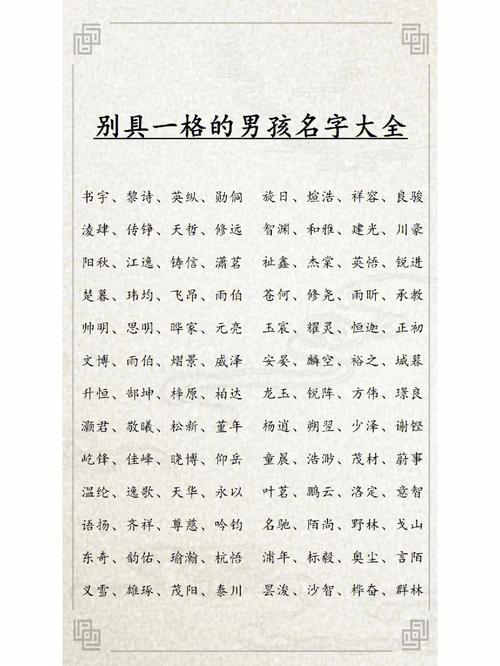 别具一格的男孩名字大全
书宇、黎诗、英纵、勋侗 旋日、煊浩、祥容、良骏
凌肆、传铮、天哲、修远 智渊、和雅、建光、川豪
阳秋、江逸、铸信、潇茗 祉鑫、杰棠、英悟、锐进
楚暮、玮均、飞昂、雨伯 苍何、修尧、雨昕、承教
帅明、思明、晔家、元亮 玉宸、耀灵、恒迦、正初
文博、雨伯、熠景、威泽 安晏、麟空、裕之、城暮
升恒、郜坤、梓原、柏达 龙玉、锐阵、方伟、璟良
灏君、敬曦、松新、堇年 杨逍、朔翌、少泽、谢铿
屹锋、佳峰、晓博、仰岳 童晨、浩渺、茂材、蔚事
温纶、逸歌、天华、永以 叶茗、鹏云、洛定、意智
语扬、齐祥、尊慈、吟钧 名驰、陌尚、野林、戈山
东奇、韵佑、瑜瀚、杭悟 浦年、标毅、奥尘、言陌
义雪、雄琢、茂阳、泰川 罡浚、沙智、桦奋、群林